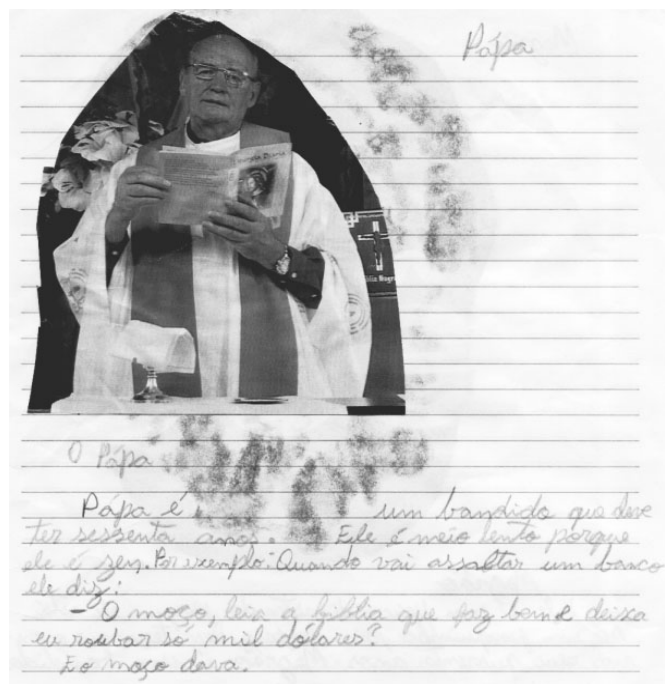 Pápa
Bíblia Sagra
O Pápa
Pápa é um bandido que deve
ter sessenta anos. Ele é meio lento porque
ele é zen. Por exemplo: Quando vai assaltar um banco
ele diz:
- O moço, leia a bíblia que faz bem e deixa
eu roubar só mil dólares?
E o moço dava.